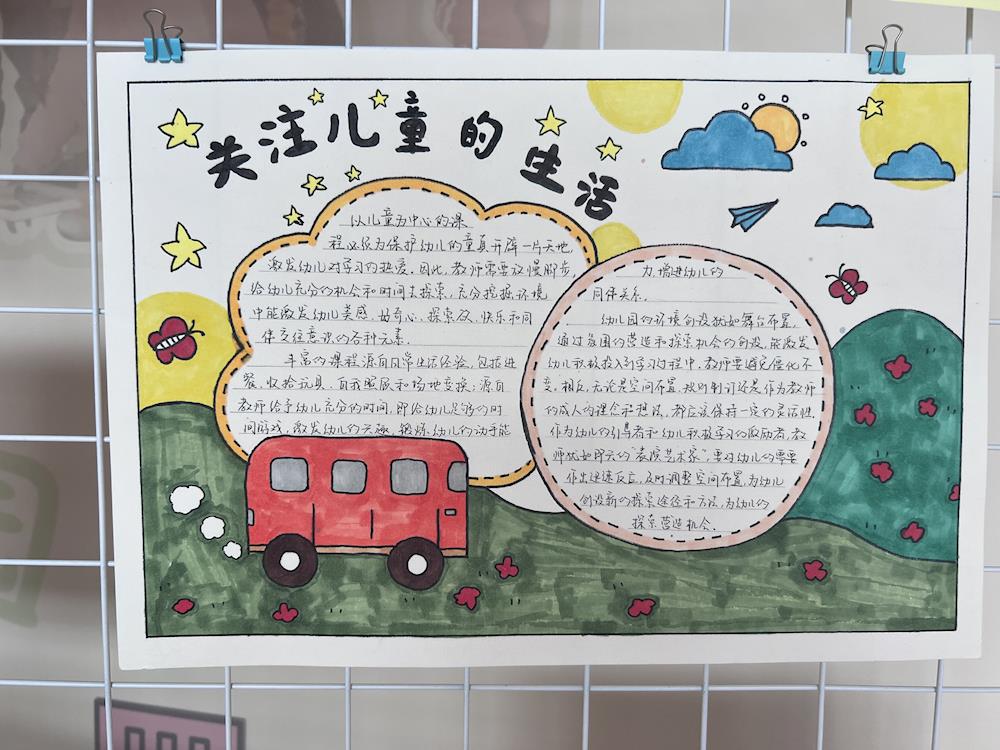 关注儿童的生活
以儿童为中心的课
程必须为保护幼儿的童真开辟一片天地,
激发幼儿对学习的热爱。因此,教师需要放慢脚步,
给幼儿充分的机会和时间去探索,充分挖掘环境
中能激发幼儿美感、好奇心、探索欲、快乐和同
伴交往意识的各种元素.
丰富的课程源自日常生活经验,包括进
餐、收拾玩具、自我服展和场地变换;源自
教师给予幼儿充分的时间,即给幼儿足够的时
间游戏,激发幼儿的兴趣,锻炼幼儿的动手能
力,增进幼儿的
同伴关系.
幼儿园的环境创设犹如舞台布置,
通过氛围的营造和探索机会的创设,能激发
幼儿积极投入到学习过程中.教师要避免僵化不
变,相反,无论是空间布置、规则制订还是作为教师
的成人的理念和想法,都应该保持一定的灵活性.
作为幼儿的引导者和幼儿积极学习的激励者,教
师犹如即兴的"表演艺术家",要对幼儿的需要
作出迅速反应,及时调整空间布置,为幼儿
创设新的探索途径和方法,为幼儿的
探索营造机会.